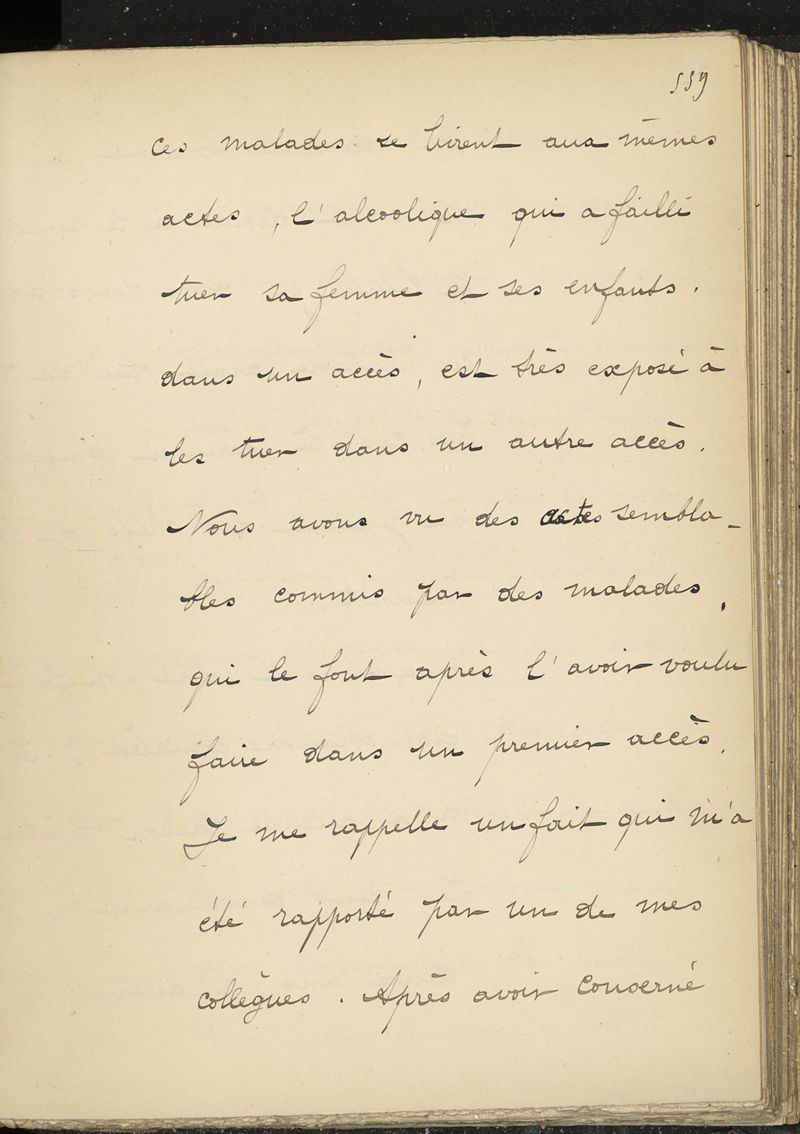 559
ces malades se livrent aux mêmes
actes, l'alcoolique qui a failli
tuer sa femme et ses enfants.
dans un accès, est très exposé à
les tuer dans un autre accès.
Nous avons vu des actes sembla-
bles commis par des malades,
qui le font après l'avoir voulu
faire dans un premier accès.
Je me rappelle un fait qui m'a
été rapporté par un de mes
collègues. Après avoir conservé